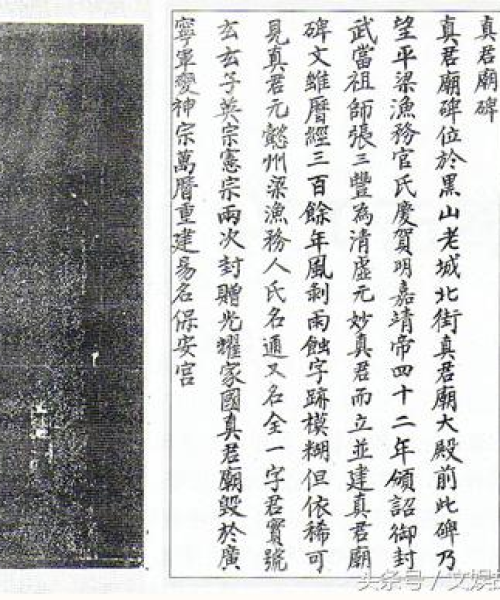 真君廟碑
真君廟碑位於黑山老城北街真君廟大殿前此碑乃
望平梁漁務官氏慶賀明嘉靖帝四十二年頒詔御封
武當祖師張三豐為清虛元妙真君而立並建真君廟
碑文雖曆經三百餘年風剥雨蝕字跡模糊但依稀可
見真君元懿州梁漁務人氏名通又名全一字君實號
玄玄子英宗憲宗兩次封贈光耀家國真君廟毀於廣
寧軍變神宗萬曆重建易名保安宮
头条号/文娱